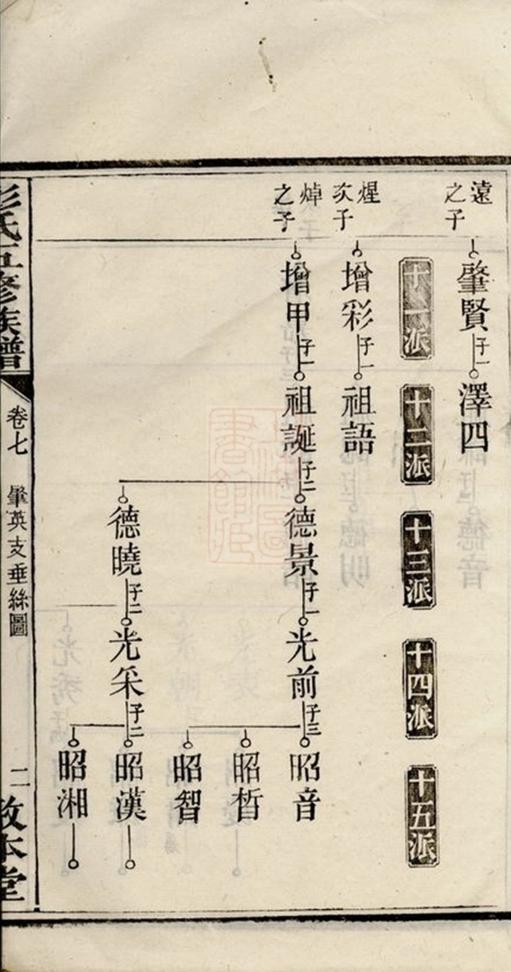 遠之子
肇賢 子一 澤四
十一派 十二派 十三派 十四派 十五派
煋次子
增彩 子一 祖語
焯之子
增甲 子一 祖誕 子二 德景 子一 光前 子三 昭音
昭晳
昭智
德曉 子二 光采 子二 昭漢
昭湘
彭氏五修族譜 卷七 肇英支垂絲圖 二 敦本堂
上海圖書館藏